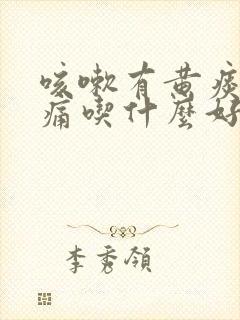 咳嗽有黄痰
痛喫什麼好
李秀領